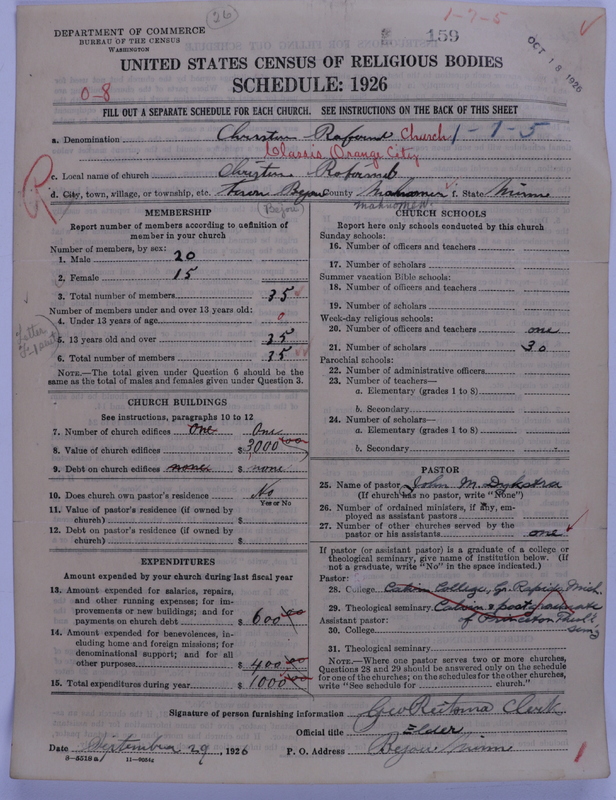 26
1-7-5
159
OCT 18 1926
DEPARTMENT OF COMMERCE
BUREAU OF THE CENSUS
WASHINGTON
UNITED STATES CENSUS OF RELIGIOUS BODIES
SCHEDULE: 1926
0-8
FILL OUT A SEPARATE SCHEDULE FOR EACH CHURCH. SEE INSTRUCTIONS ON THE BACK OF THIS SHEET
a. Denomination Christian Reformed Church 1-7-5
Classis Orange City
c. Local name of church Christian Reformed
d. City, town, village, or township, etc. Town Bejou County Mahnomen f. State Minn
(Bejou) Mahnomen.
MEMBERSHIP
Report number of members according to definition of
member in your church
Number of members, by sex:
1. Male 20
2. Female 15
3. Total number of members 35
Number of members under and over 13 years old:
4. Under 13 years of age 0
5. 13 years old and over 35
6. Total number of members 35
Letter
NOTE.—The total given under Question 6 should be
same as the total of males and females given under Question 3.
CHURCH BUILDINGS
See instructions, paragraphs 10 to 12
7. Number of church edifices one One
8. Value of church edifices $ 3000 00
9. Debt on church edifices none $ none
10. Does church own pastor's residence No
Yes or No
11. Value of pastor's residence (if owned by
church) $
12. Debt on pastor's residence (if owned by
church) $
EXPENDITURES
Amount expended by your church during last fiscal year
13. Amount expended for salaries, repairs,
and other running expenses; for im-
provements or new buildings; and for
payments on church debt $ 600 00
14. Amount expended for benevolences, in-
cluding home and foreign missions; for
denominational support; and for all
other purposes $ 400 00
15. Total expenditures during year $ 1000 00
CHURCH SCHOOLS
Report here only schools conducted by this church
Sunday schools:
16. Number of officers and teachers
17. Number of scholars
Summer vacation Bible schools:
18. Number of officers and teachers
19. Number of scholars
Week-day religious schools:
20. Number of officers and teachers one
21. Number of scholars 30
Parochial schools:
22. Number of administrative officers
23. Number of teachers—
a. Elementary (grades 1 to 8)
b. Secondary
24. Number of scholars—
a. Elementary (grades 1 to 8)
b. Secondary
PASTOR
25. Name of pastor John M. Dykstra
(If church has no pastor, write "None")
26. Number of ordained ministers, if any, em-
ployed as assistant pastors
27. Number of other churches served by the
pastor or his assistants one
If pastor (or assistant pastor) is a graduate of a college or
theological seminary, give name of institution below. (If
not a graduate, write "No" in the space indicated.)
Pastor:
28. College Calvin College, Gr. Rapids, Mich.
29. Theological seminary Calvin & post graduate
Assistant pastor: of Princeton Theol.
30. College Sem.
31. Theological seminary
NOTE.—Where one pastor serves two or more churches,
Questions 28 and 29 should be answered only on the schedule
for one of the churches; on the schedules for the other churches,
write "See schedule for church."
Signature of person furnishing information Geo Reitsma Clerk
Official title Elder
Date September 29, 1926 P. O. Address Bejou Minn
8-5518 a 11-9054